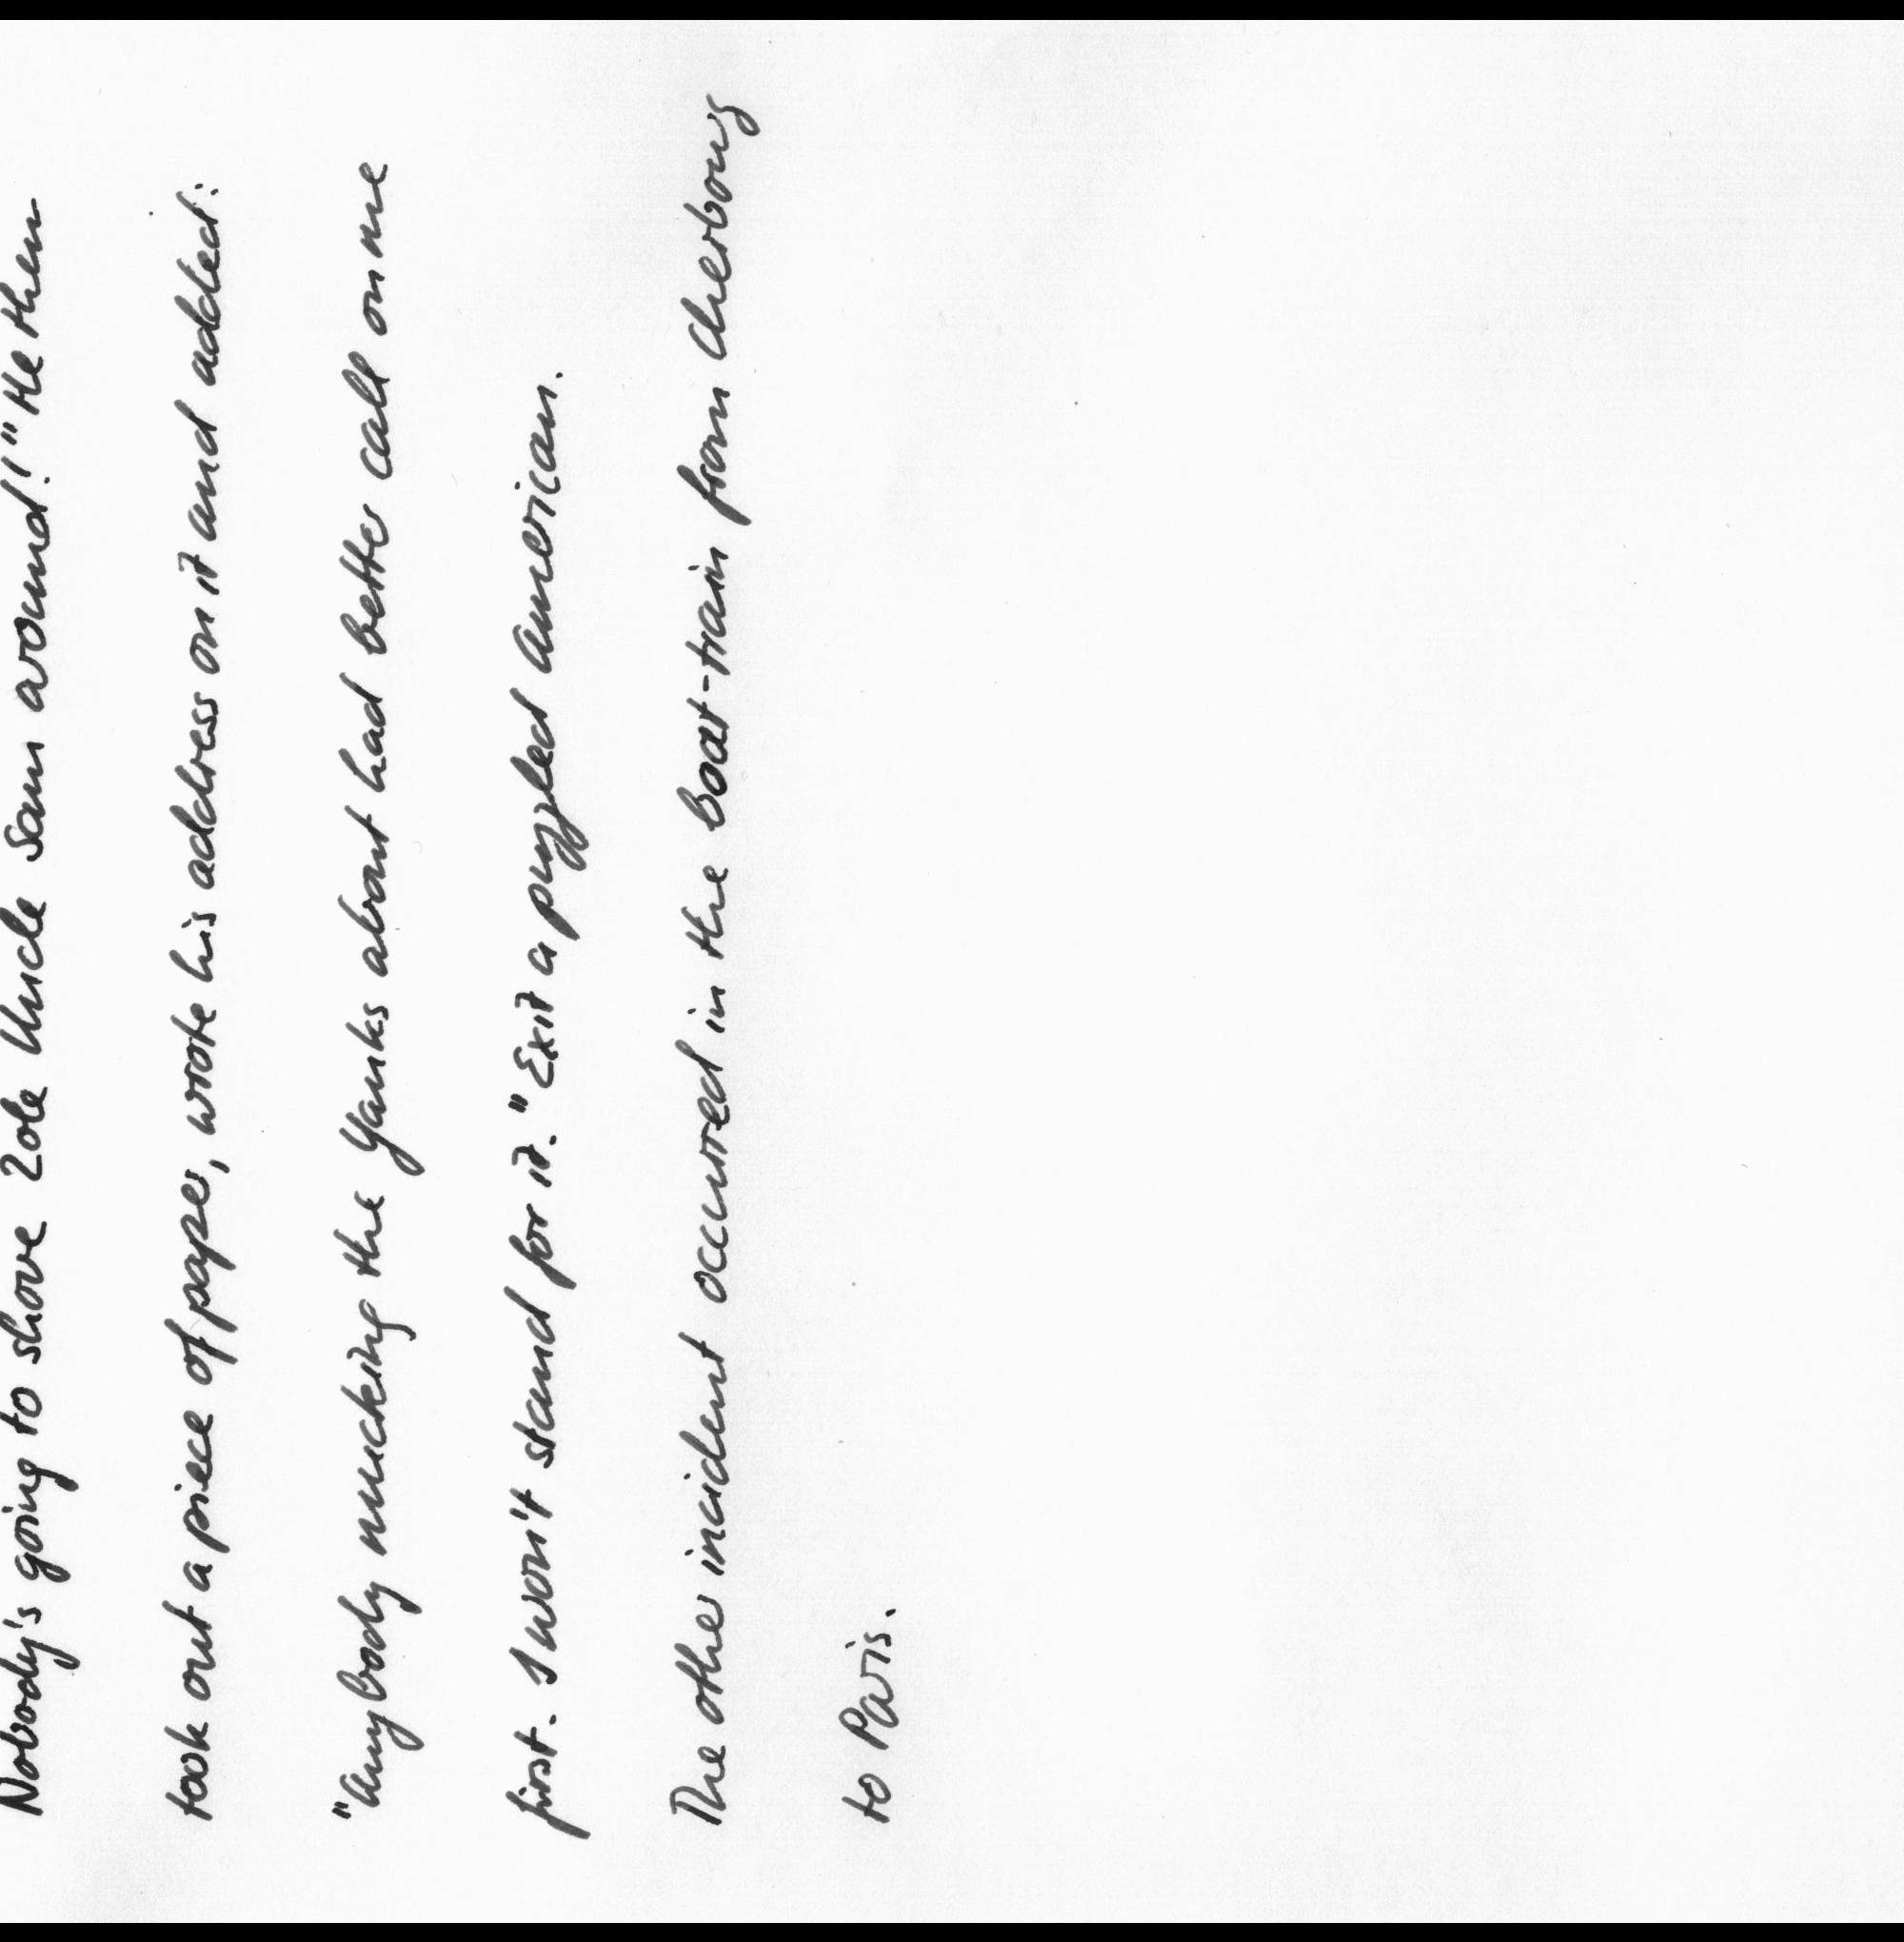 Nobody's going to shove 20le Uncle Sam around!" He then
took out a piece of paper, wrote his address on it and added:
"Anybody mucking the Yanks about had better call on me
first. I won't stand for it." Exit a puzzled American.
The other incident occurred in the boat-train from Cherbourg
to Paris.